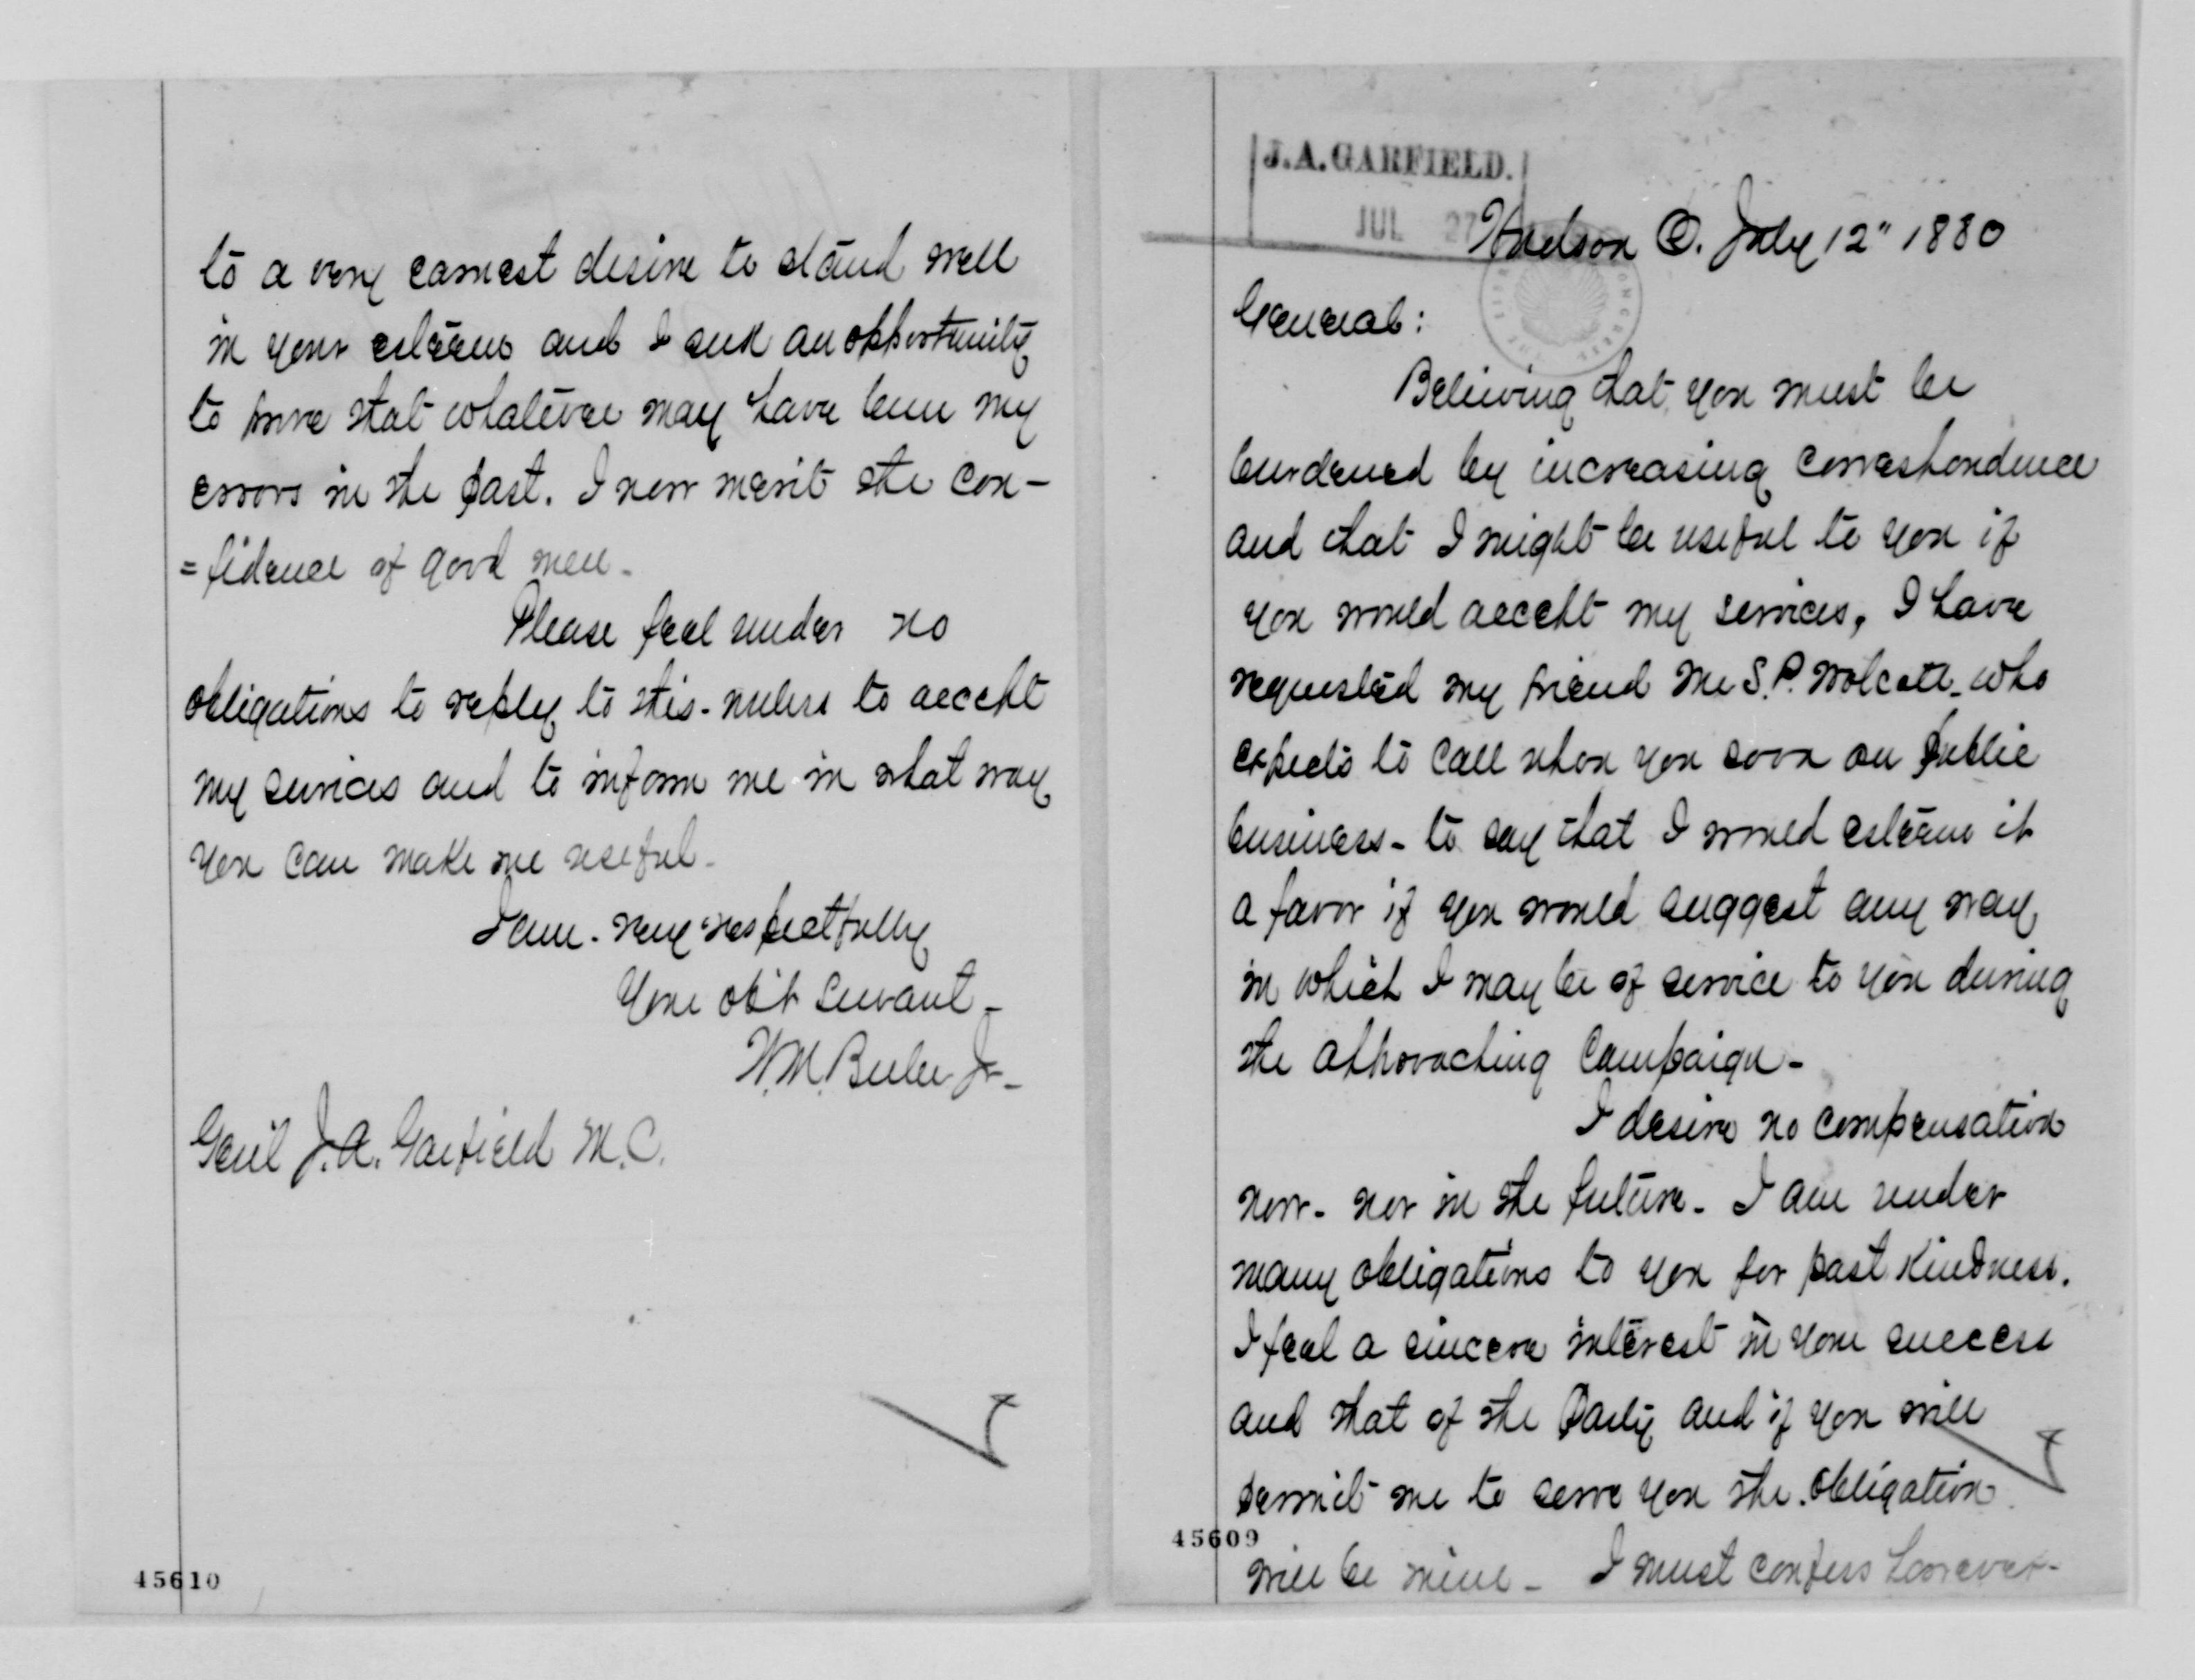 J.A. GARFIELD.
JUL 27
Hudson O. July 12" 1880
General:
Believing that you must be
burdened by increasing correspondence
and that I might be useful to you if
you would accept my services, I have
requested my friend Mr S. P. Wolcott - who
expects to call upon you soon on public
business - to say that I would esteem it
a favor if you would suggest any way
in which I may be of service to you during
the approaching Campaign -
I desire no compensation
now - nor in the future - I am under
many obligations to you for past Kindness.
I feel a sincere interest in your success
and that of the Party and if you will
permit me to serve you the obligation
will be mine - I must confess however -
45609
to a very earnest desire to stand well
in your esteem and I seek an opportunity
to prove that whatever may have been my
errors in the past. I now merit the con-
=fidence of good men -
Please feel under no
obligations to reply to this - unless to accept
my services and to inform me in what way
you can make me useful -
I am - very respectfully
Your ob't servant -
W. M. Beebe Jr -
Gen'l J. A. Garfield M.C.
45610